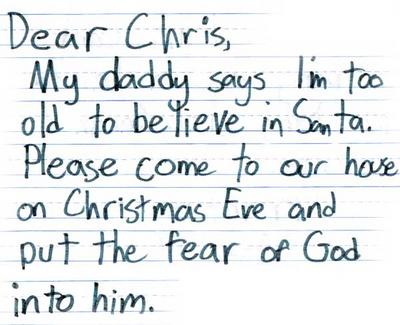 Dear Chris,
My daddy says I'm too
old to believe in Santa.
Please come to our house
on Christmas Eve and
put the fear of God
into him.